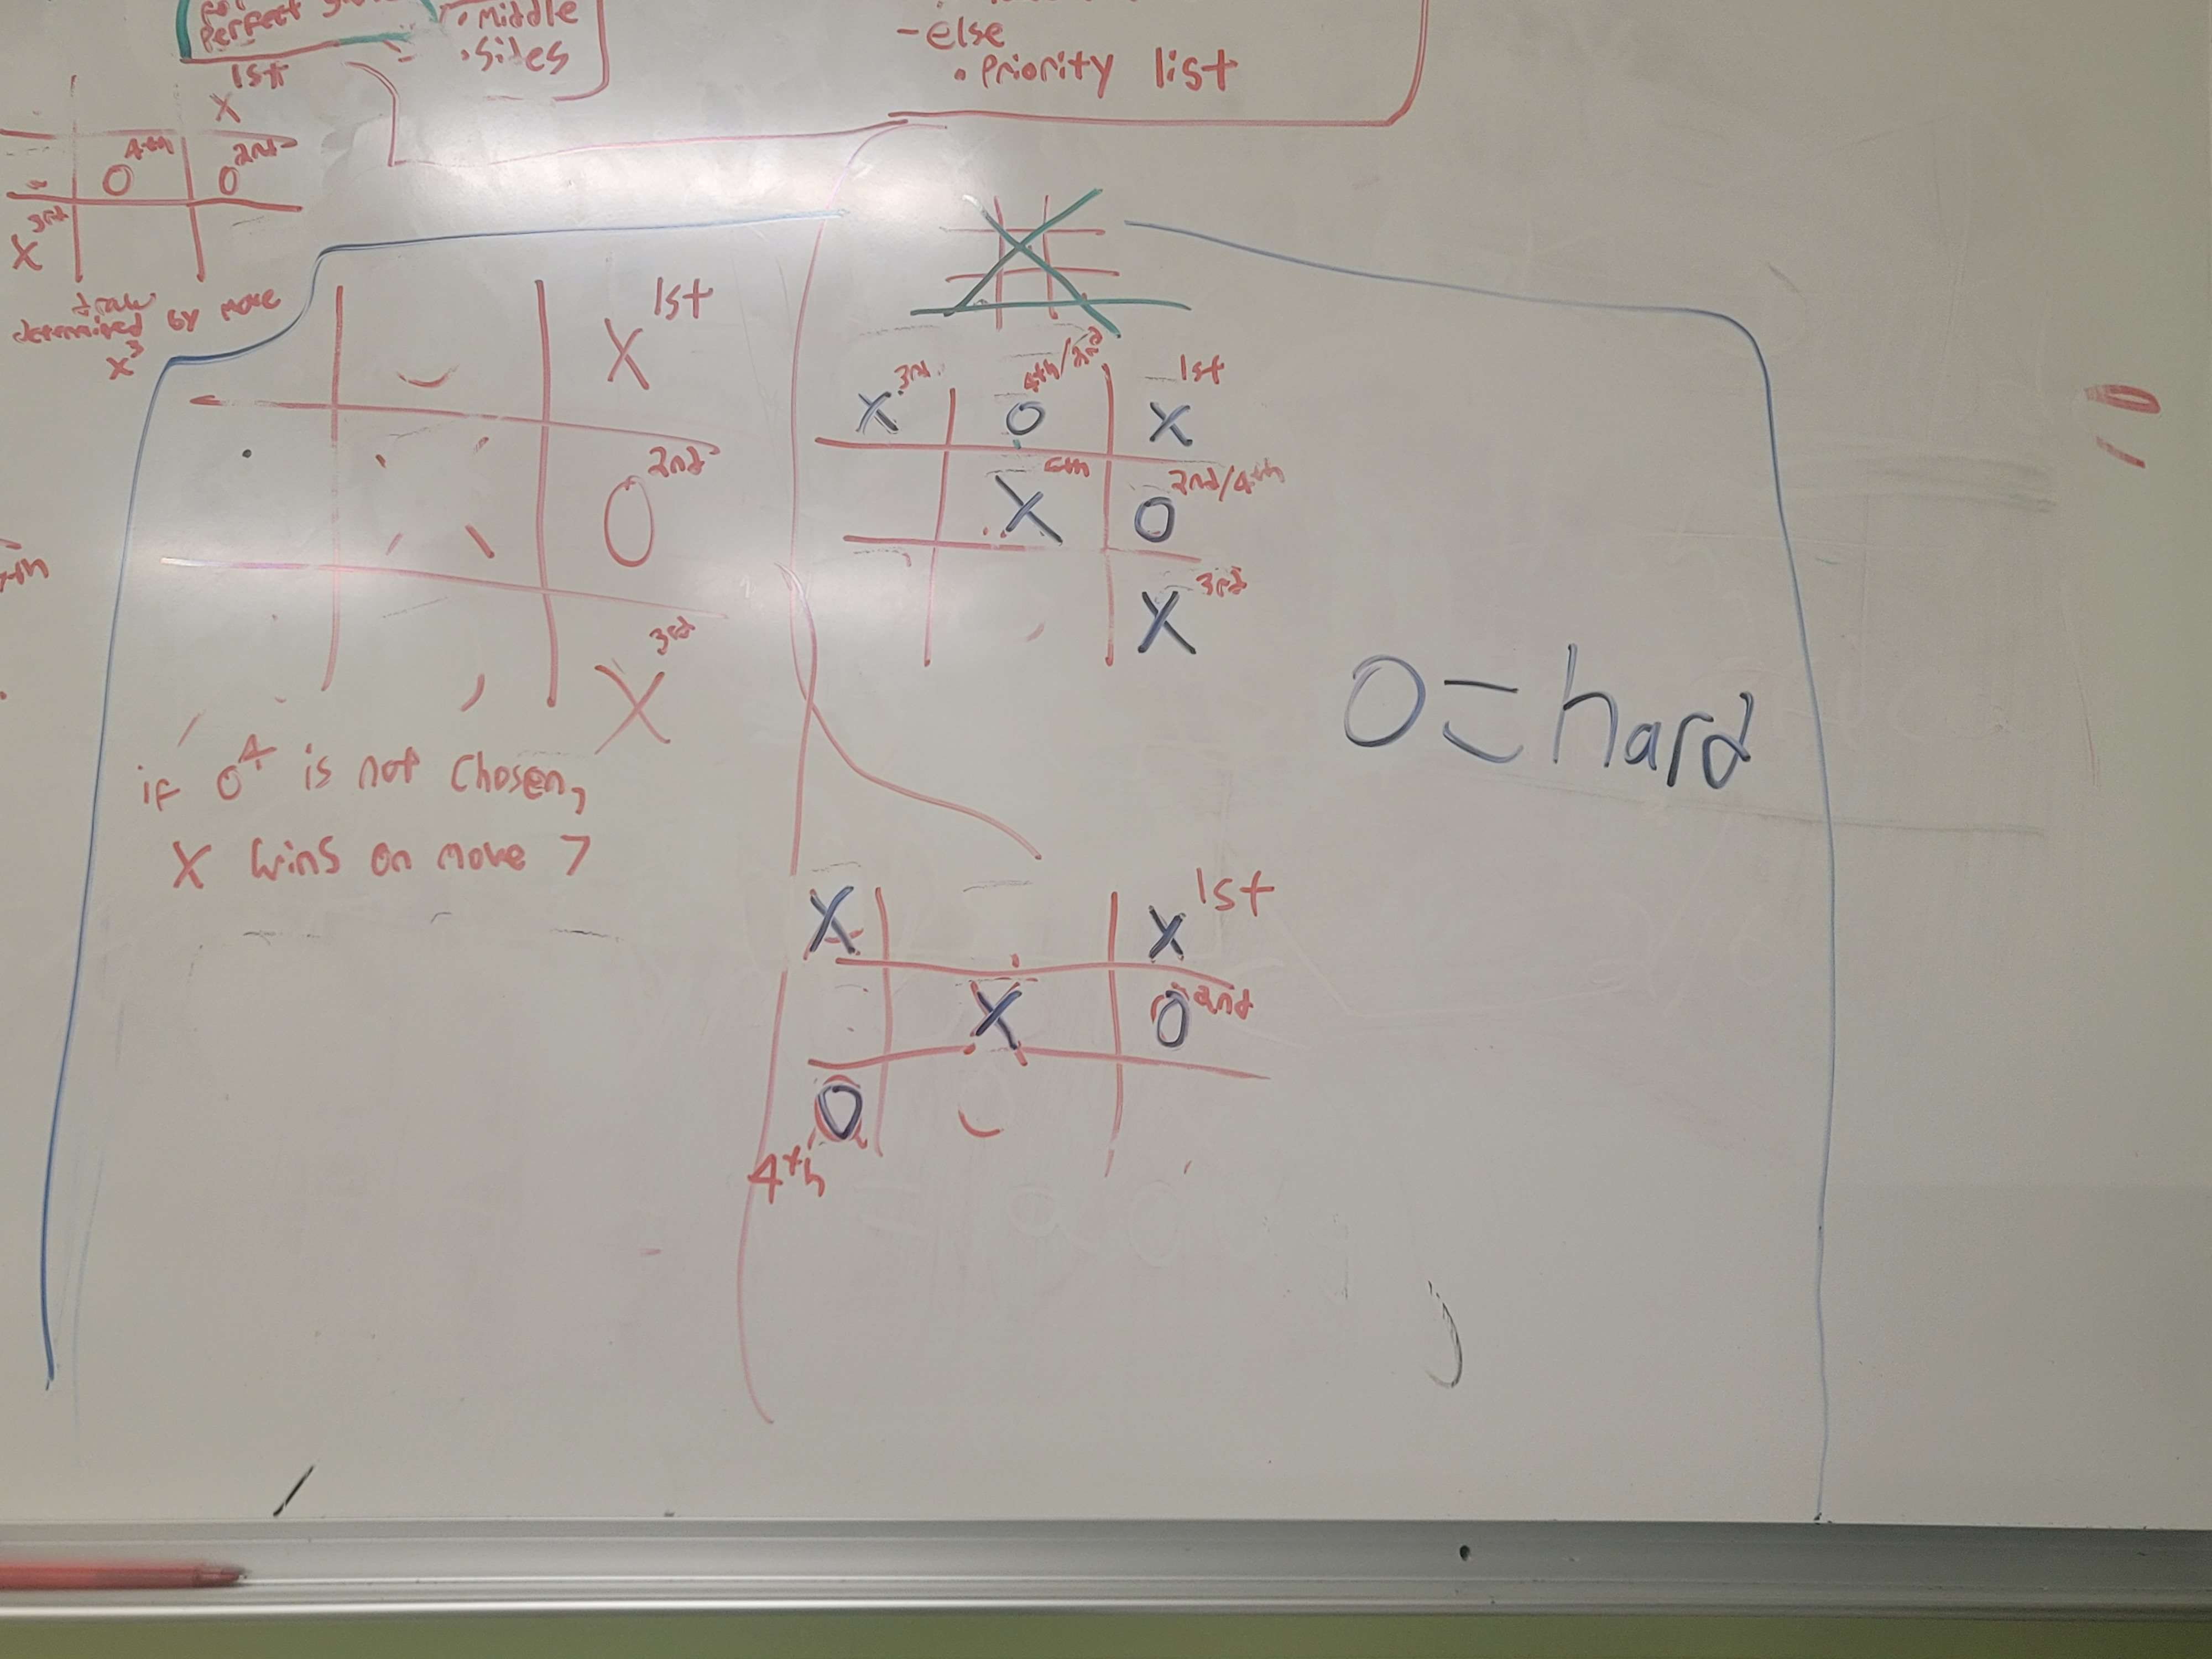 Perfect
• Middle
• Sides
- else
• Priority list
1st
X
4th 2nd
O O
3rd
X
determined by move
X³
X 1st
O 2nd
X 3rd
if O⁴ is not chosen,
X wins on move 7
X 3rd O 4th/2nd X 1st
X O 2nd/4th
X 3rd
O = hard
X X 1st
X O 2nd
O
4th